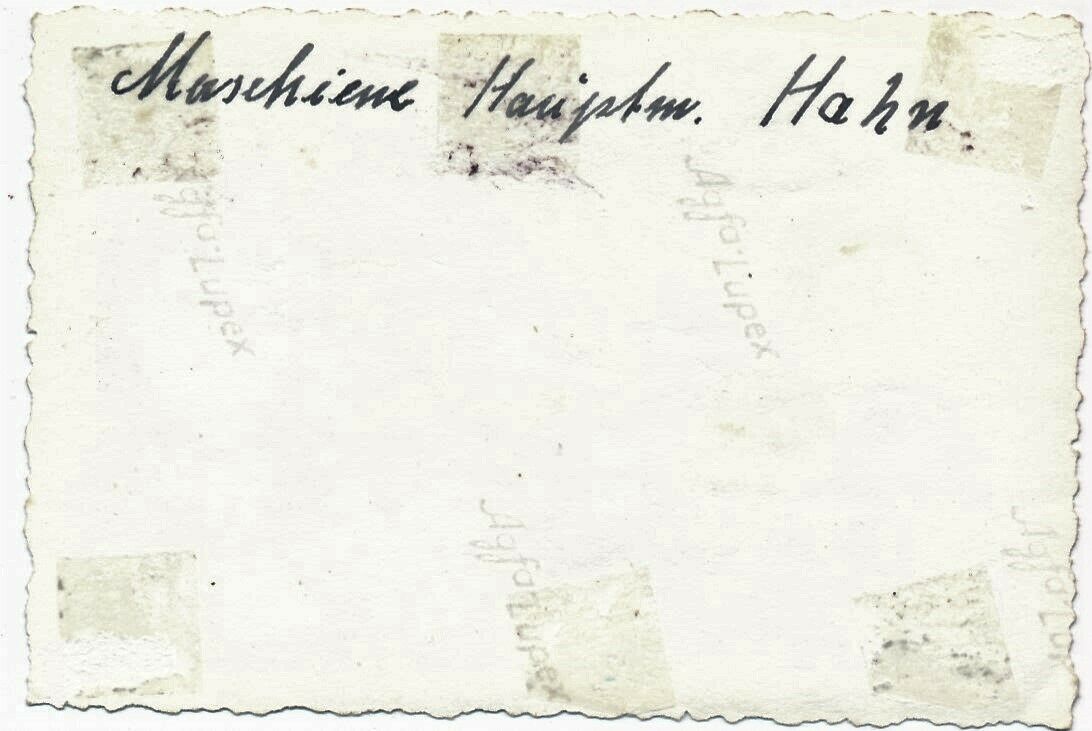 Maschiene Hauptm. Hahn
Agfa Lupex
Agfa Lupex
Agfa Lupex
Agfa Lu